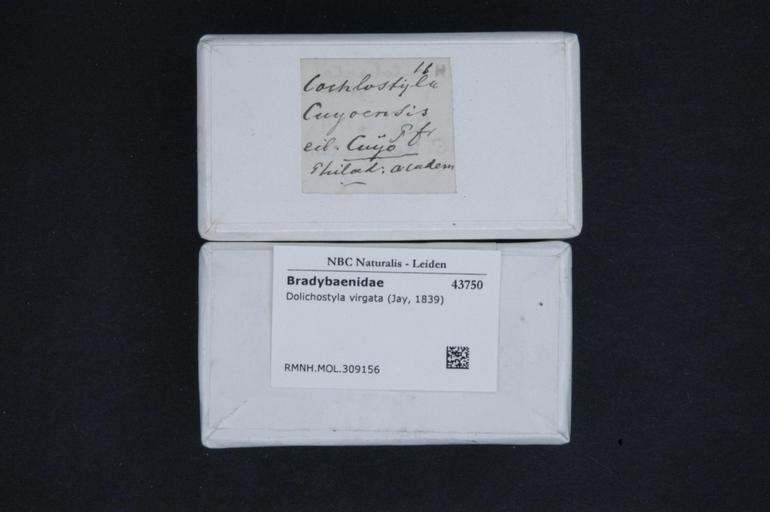 16
Cochlostyla
Cuyoensis
Pfr
eil. Cuyo
Philad. academ
NBC Naturalis - Leiden
Bradybaenidae 43750
Dolichostyla virgata (Jay, 1839)
RMNH.MOL.309156